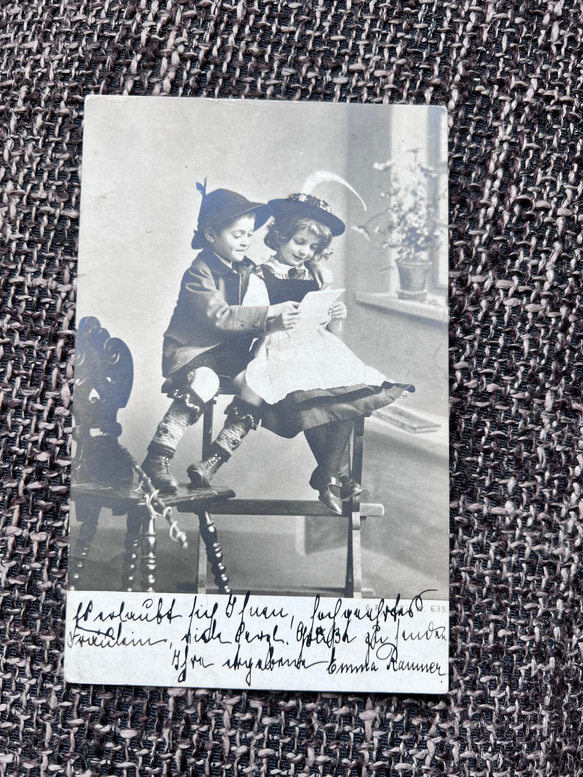 635
Es erlaubt sich Ihnen, hochgeehrtes
Fräulein, viele herzl. Grüße zu senden
Ihre ergebene Emma Rammer.